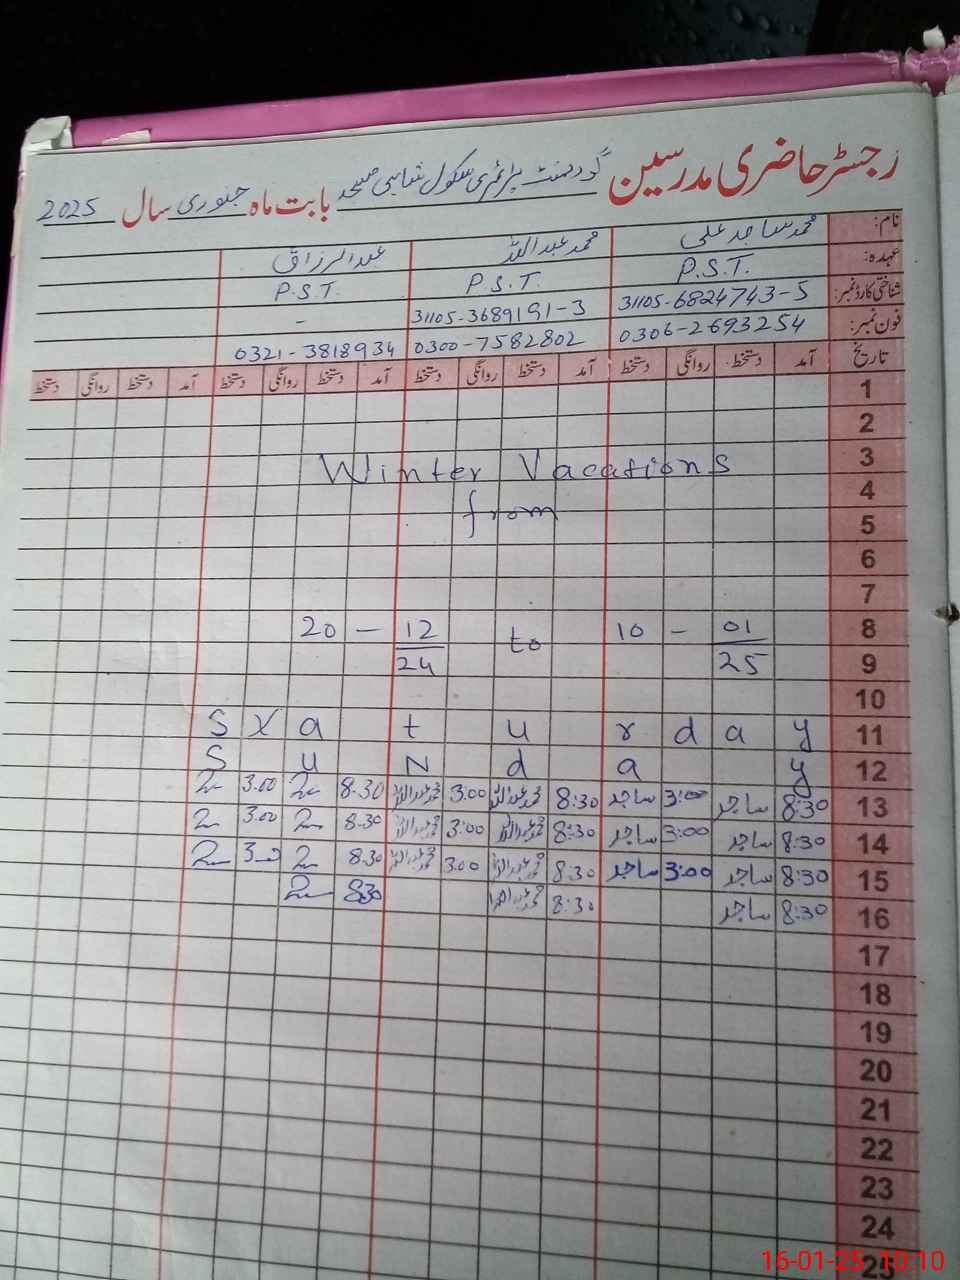 رجسٹر حاضری مدرسین گورنمنٹ پرائمری سکول شاہی مسجد بابت ماہ جنوری سال 2025
نام: محمد ساجد علی محمد عبداللہ عبدالرزاق
عہدہ: P.S.T. P.S.T. P.S.T.
شناختی کارڈ نمبر: 31105-6824743-5 31105-3689191-3 -
فون نمبر: 0306-2693254 0300-7582802 0321-3818934
تاریخ آمد دستخط روانگی دستخط آمد دستخط روانگی دستخط آمد دستخط روانگی دستخط آمد دستخط روانگی دستخط
1
2
3 Winter Vacations
4
5 from
6
7
8 20 - 12 to 10 - 01
9 24 25
10
11 S X a t u r d a y
12 S u N d a y
13 8:30 ساجد 3:00 ساجد 8:30 محمد عبداللہ 3:00 محمد عبداللہ 8.30 3.00
14 8:30 ساجد 3:00 ساجد 8:30 محمد عبداللہ 3:00 محمد عبداللہ 8.30 3.00
15 8:30 ساجد 3:00 ساجد 8:30 محمد عبداللہ 3.00 محمد عبداللہ 8.30 3.00
16 8:30 ساجد 8:30 محمد عبداللہ 8.30
17
18
19
20
21
22
23
24
25
16-01-25 10:10